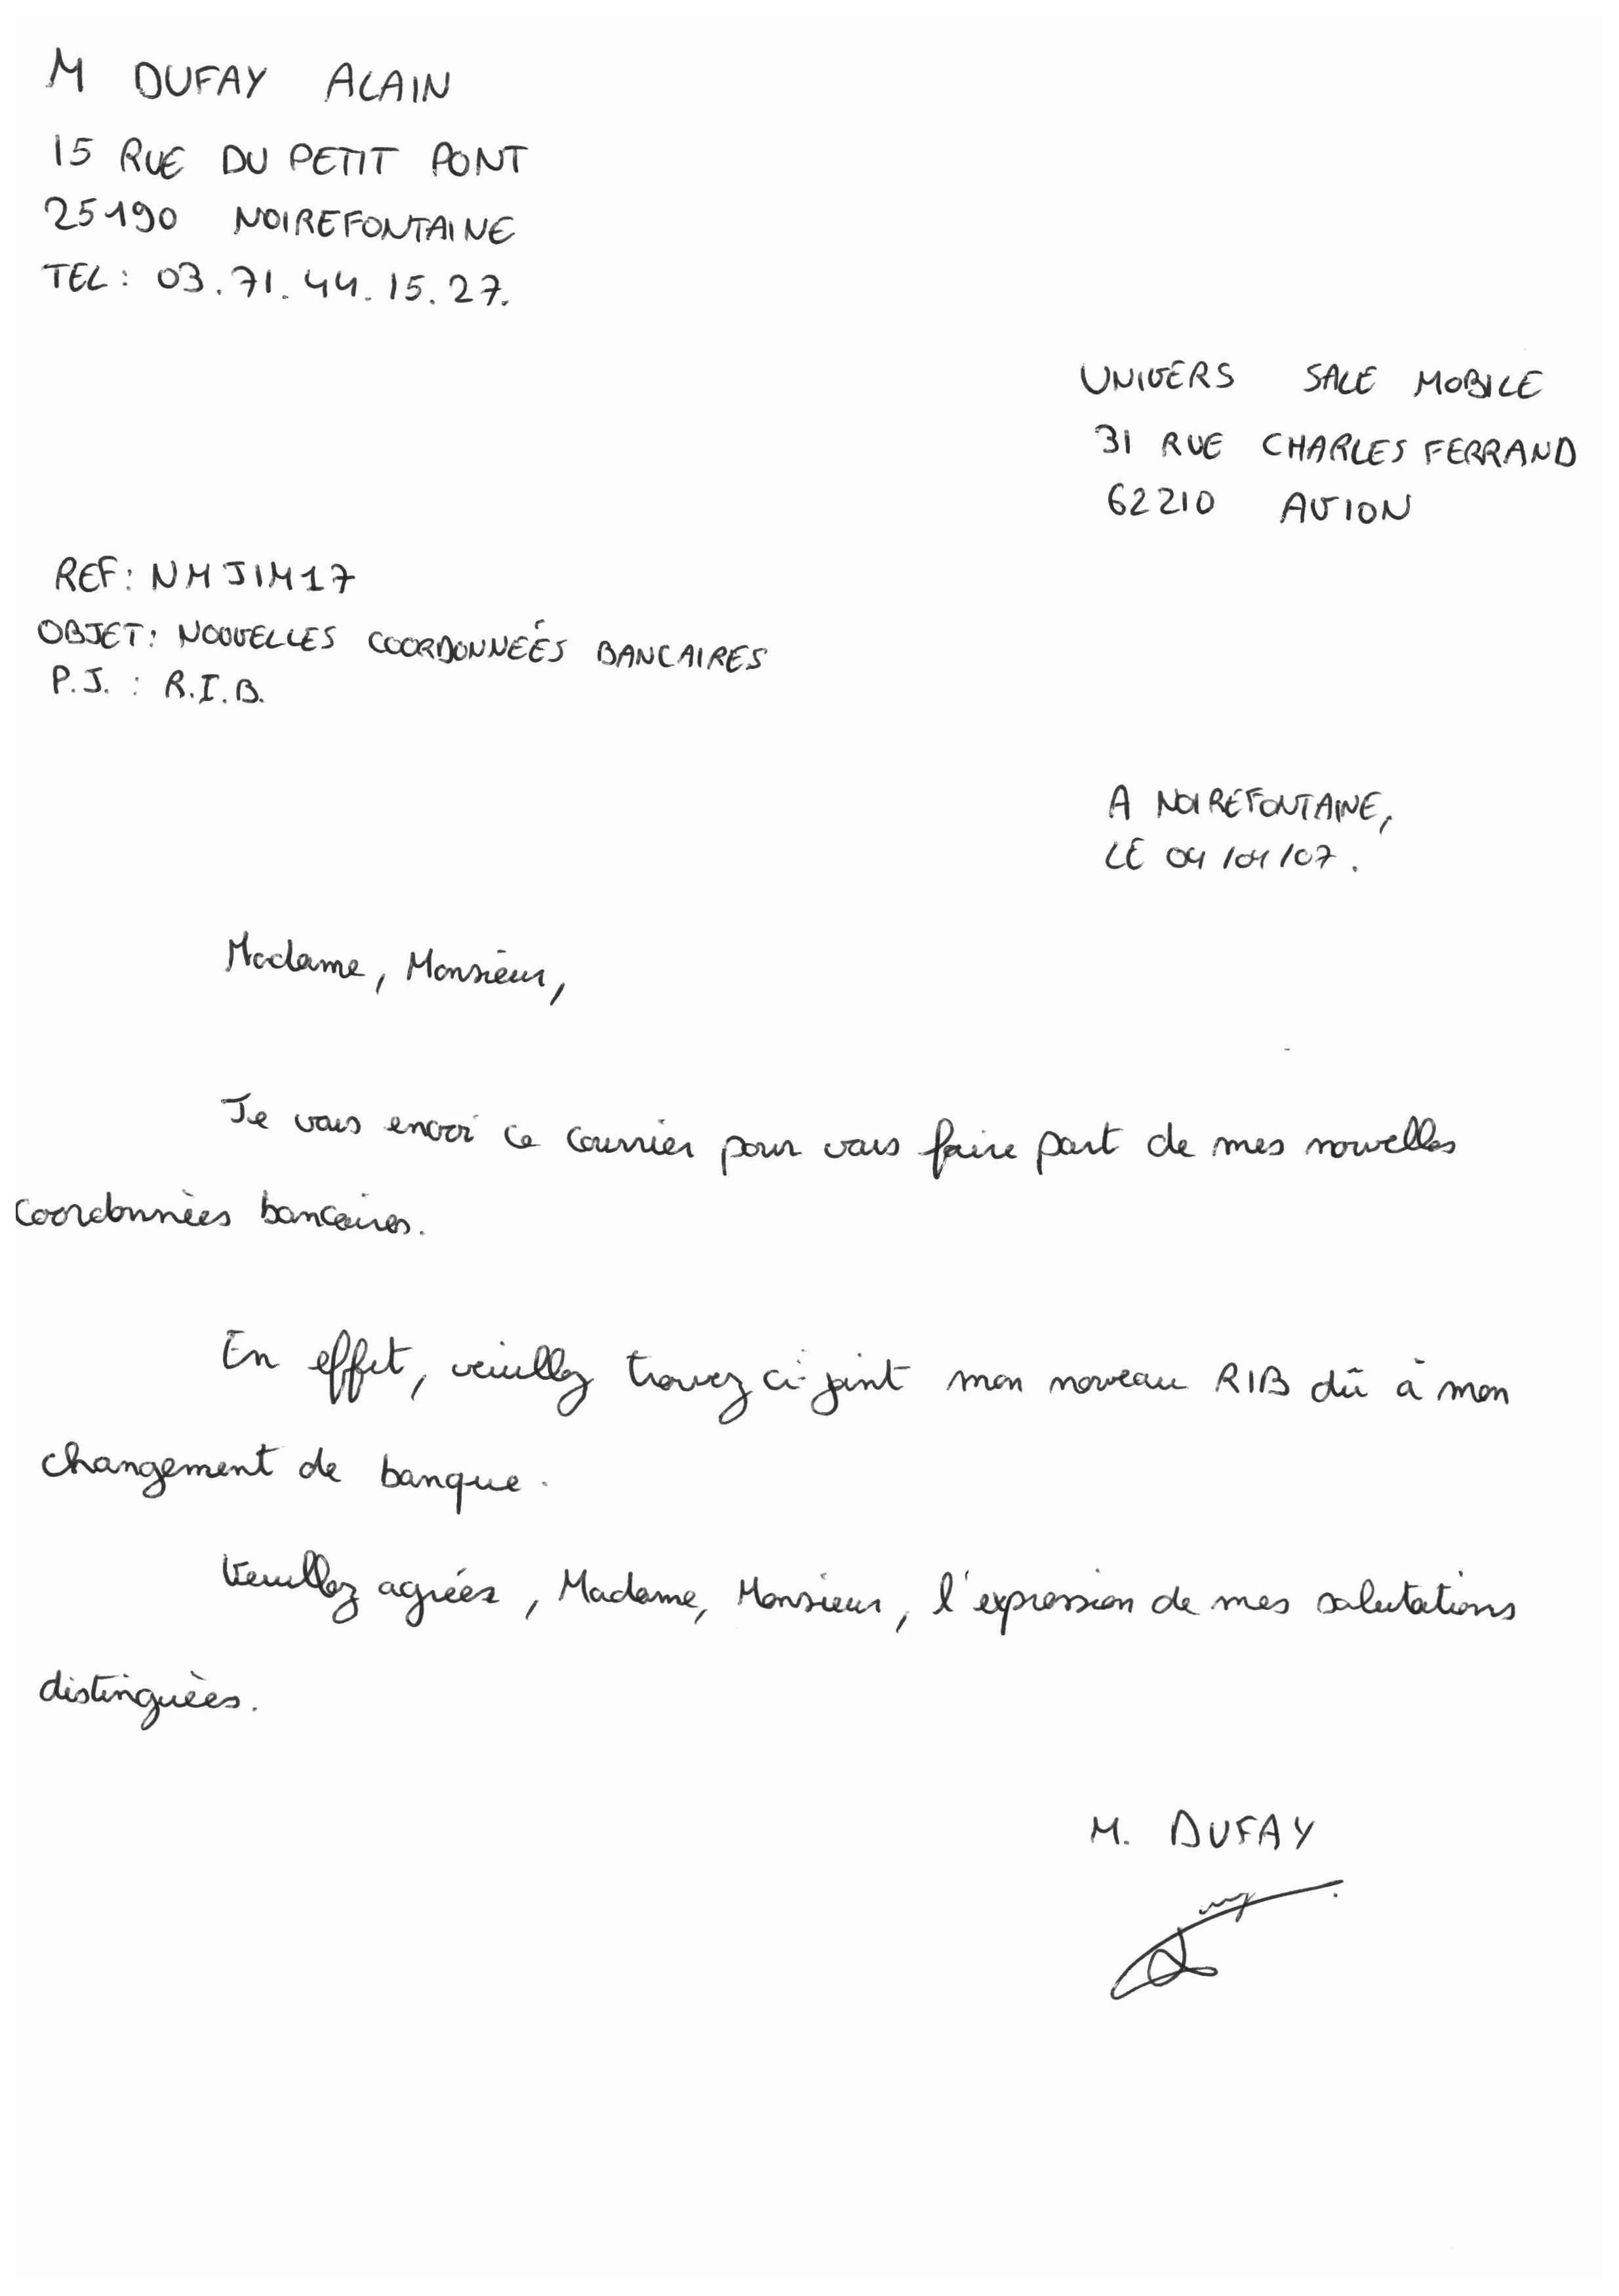 M DUFAY ALAIN
15 RUE DU PETIT PONT
25190 NOIREFONTAINE
TEL : 03.71.44.15.27.
UNIVERS SALE MOBILE
31 RUE CHARLES FERRAND
62210 AVION
REF : NMJIM17
OBJET : NOUVELLES COORDONNEÉS BANCAIRES
P.J. : R.I.B.
A NOIREFONTAINE,
LE 04/01/07.
Madame, Monsieur,
Je vous envoi ce courrier pour vous faire part de mes nouvelles
coordonnées bancaires.
En effet, veuillez trouvez ci-joint mon nouveau RIB dû à mon
changement de banque.
Veuillez agréez, Madame, Monsieur, l'expression de mes salutations
distinguées.
M. DUFAY